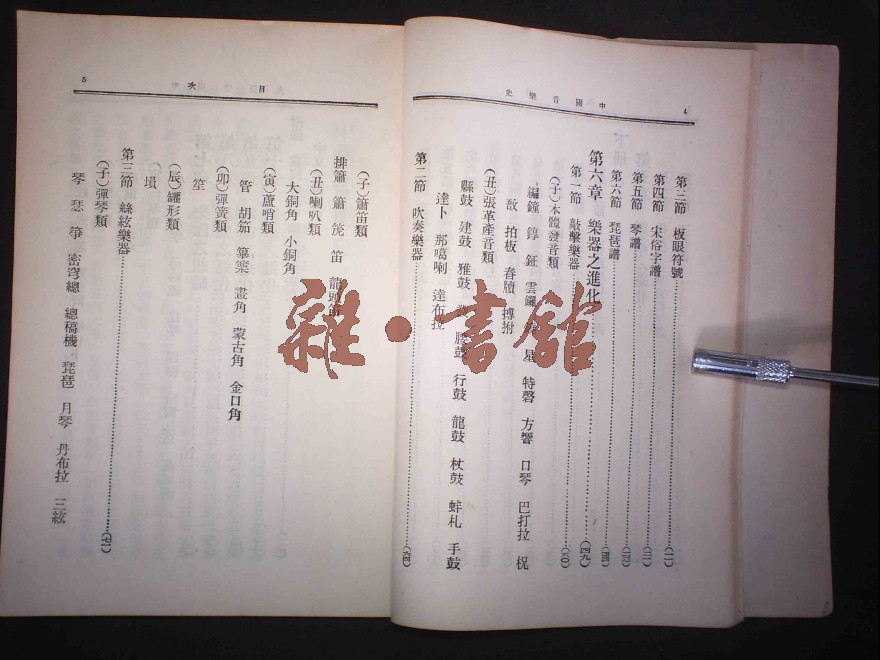 中國音樂史 4
第三節 板眼符號 (一一)
第四節 宋俗字譜
第五節 琴譜
第六節 琵琶譜
第六章 樂器之進化 (四九)
第一節 敲擊樂器 (五〇)
(子)本體發音類
編鐘 錞 鉦 雲鑼 星 特磬 方響 口琴 巴打拉 柷
敔 拍板 舂牘 搏拊
(丑)張革產音類
縣鼓 建鼓 雅鼓 腰鼓 行鼓 龍鼓 杖鼓 蚌札 手鼓
達卜 那噶喇 達布拉
第二節 吹奏樂器
目次 5
(子)簫笛類
排簫 簫 箎 笛 龍頭笛
(丑)喇叭類
大銅角 小銅角
(寅)蘆哨類
管 胡笳 篳篥 畫角 蒙古角 金口角
(卯)彈簧類
笙
(辰)罎形類
塤
第三節 絲絃樂器
(子)彈琴類
琴 瑟 箏 密穹總 總稿機 琵琶 月琴 丹布拉 三絃
雜·書館